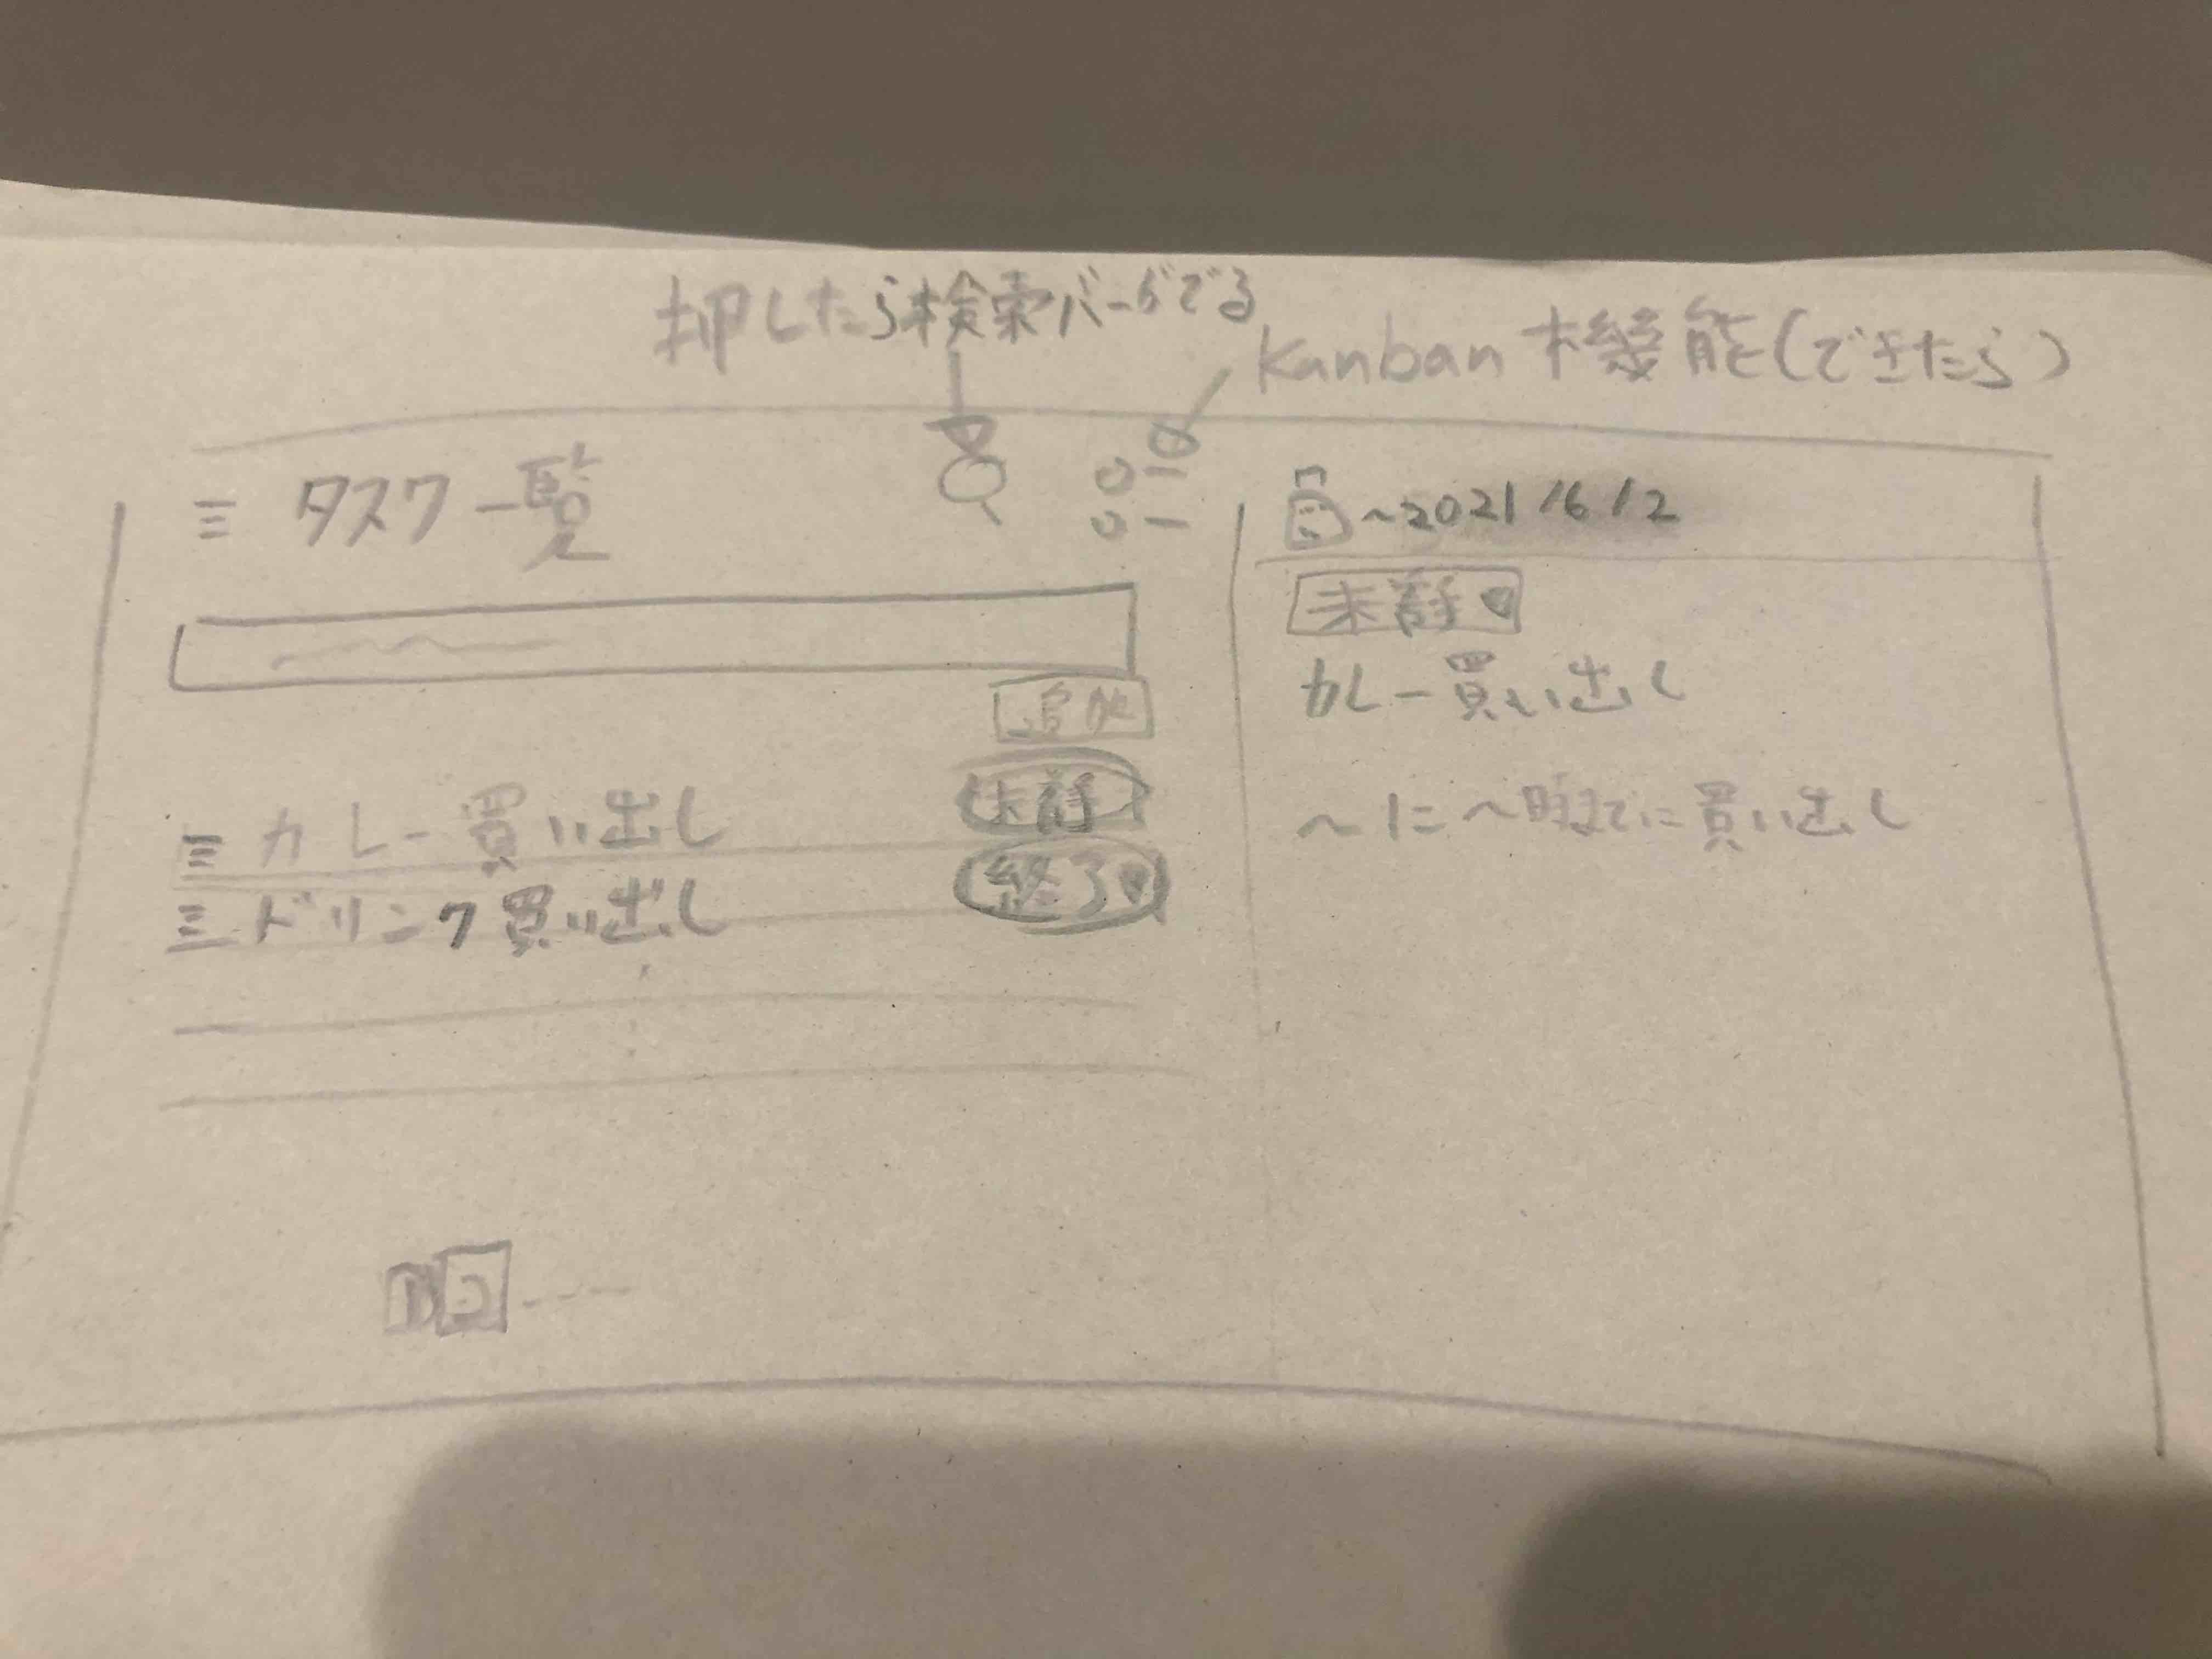 押したら検索バーがでる
Kanban機能(できたら)
タスク一覧
追加
カレー買い出し
ドリンク買い出し
終了
1 2
~2021/6/2
カレー買い出し
~に~時までに買い出し